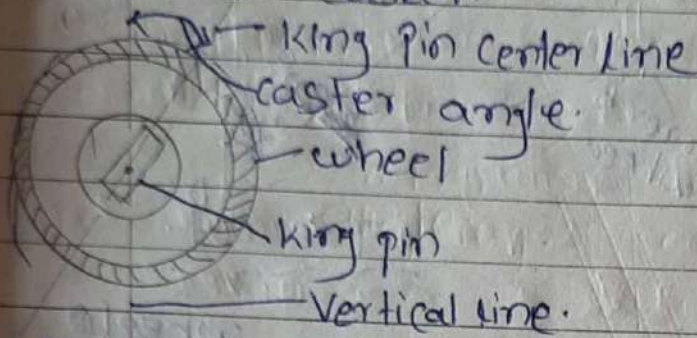 King Pin Center Line
caster angle.
wheel
king pin
Vertical line.